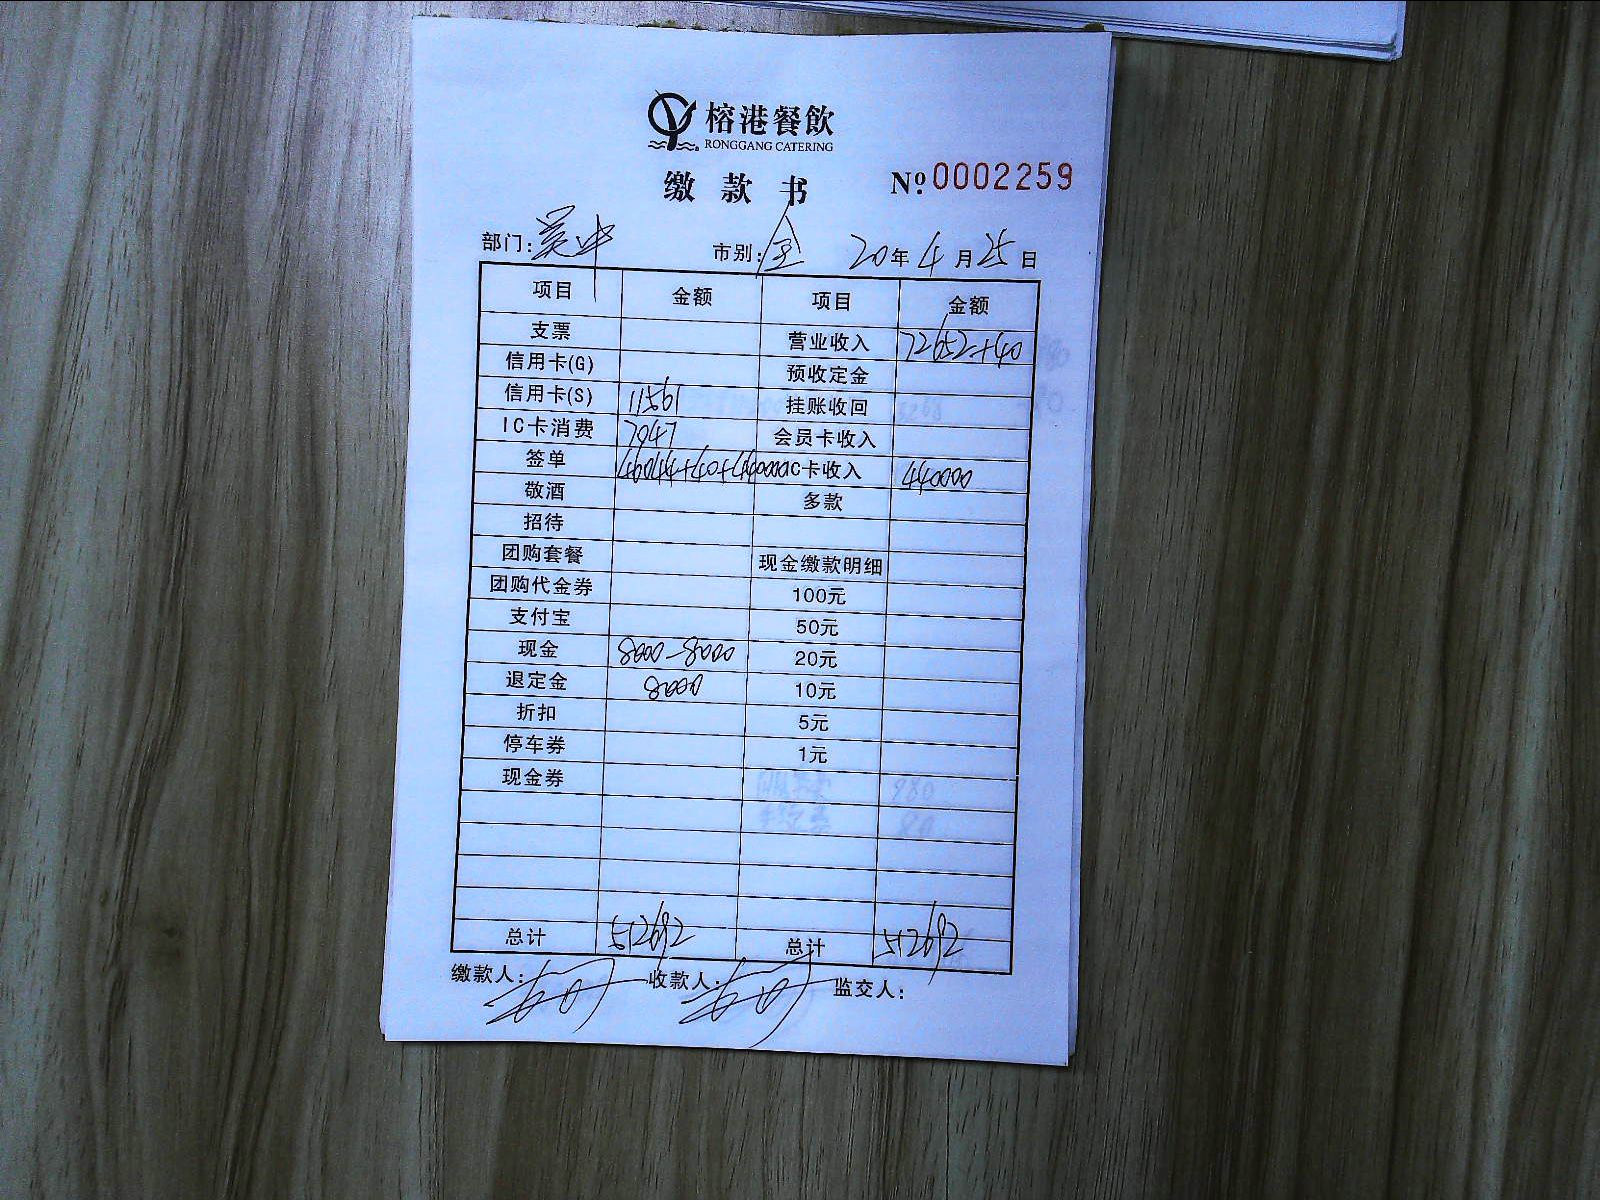 榕港餐飲
RONGGANG CATERING
缴款书 №0002259
部门: 吴中 市别: 全 20年4月25日
项目 金额 项目 金额
支票 营业收入 72652+40
信用卡(G) 预收定金
信用卡(S) 11561 挂账收回
IC卡消费 7047 会员卡收入
签单 46044+40+440000 IC卡收入 440000
敬酒 多款
招待
团购套餐 现金缴款明细
团购代金券 100元
支付宝 50元
现金 8000-8000 20元
退定金 8000 10元
折扣 5元
停车券 1元
现金券
总计 512692 总计 512692
缴款人: 收款人: 监交人: